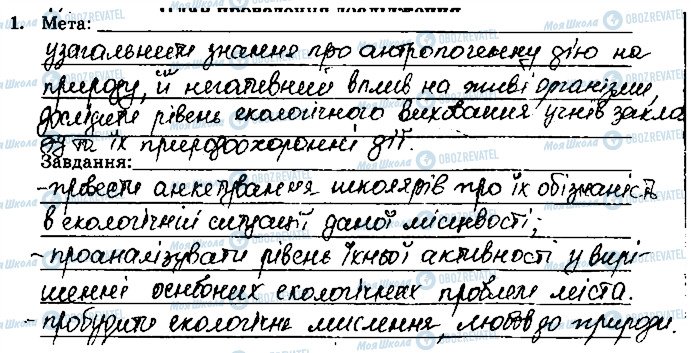 План проведення дослідження
1. Мета:
узагальнити знання про антропогенну дію на
природу, її негативний вплив на живі організми,
дослідити рівень екологічного виховання учнів закла
ду та їх природоохоронні дії.
Завдання:
-провести анкетування школярів про їх обізнаність
в екологічній ситуації даної місцевості;
-проаналізувати рівень їхньої активності у вирі-
шенні основних екологічних проблем міста.
-пробудити екологічне мислення, любов до природи.